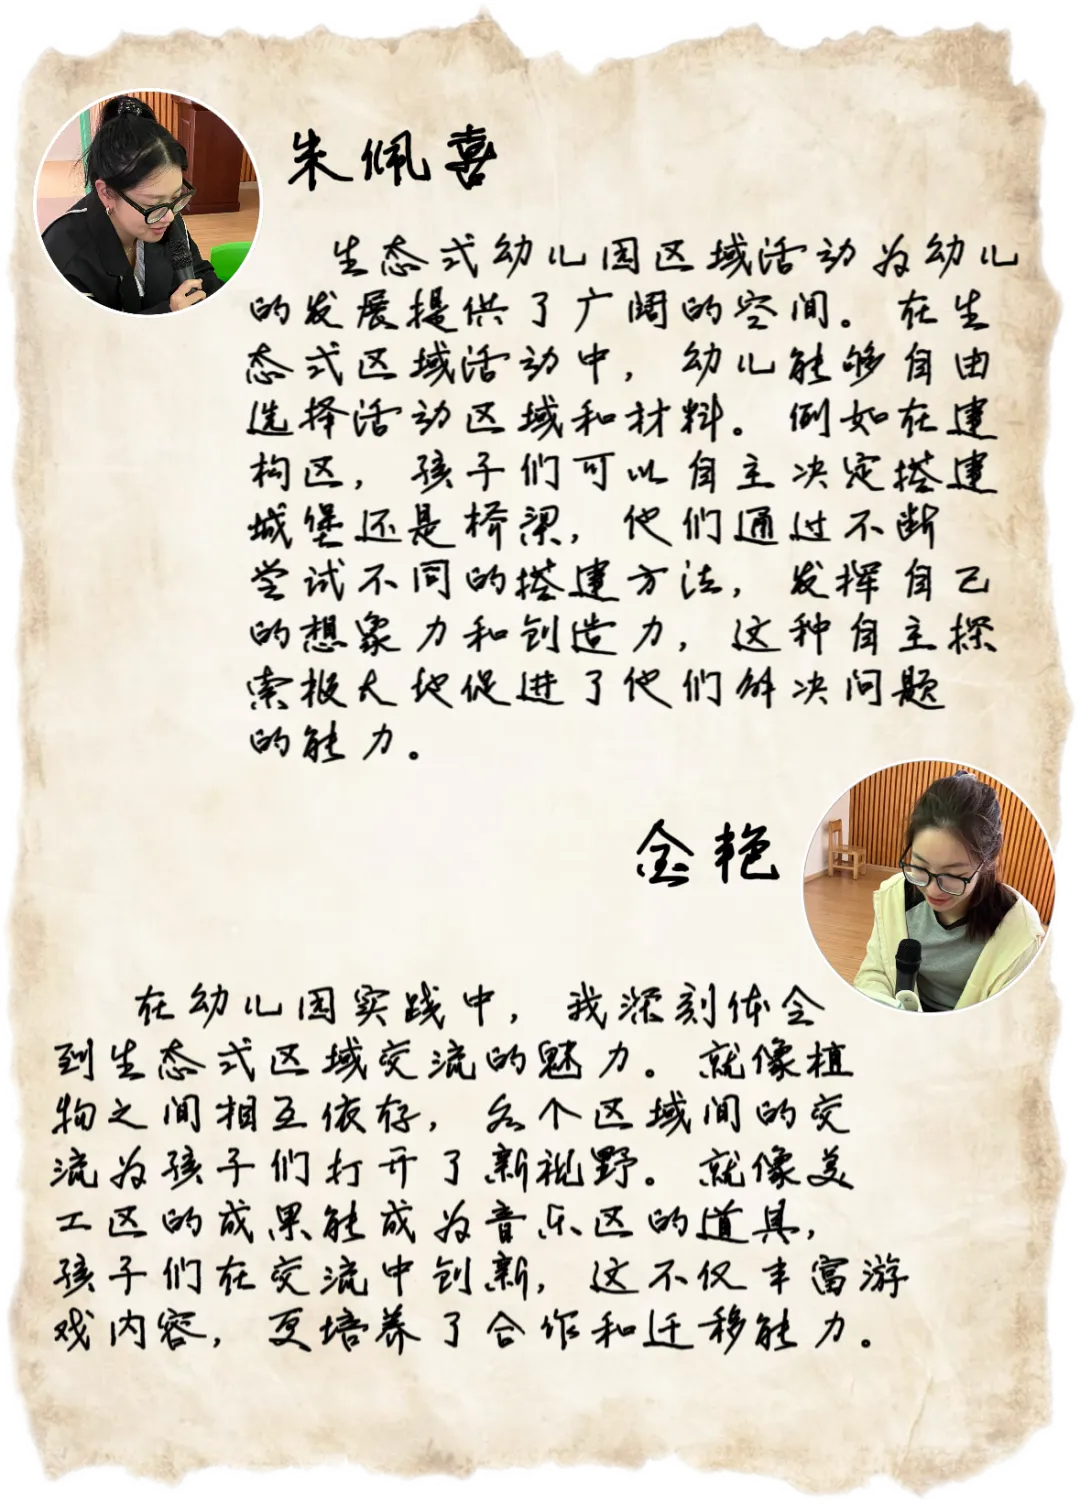 朱佩喜
生态式幼儿园区域活动为幼儿
的发展提供了广阔的空间。在生
态式区域活动中，幼儿能够自由
选择活动区域和材料。例如在建
构区，孩子们可以自主决定搭建
城堡还是桥梁，他们通过不断
尝试不同的搭建方法，发挥自己
的想象力和创造力，这种自主探
索极大地促进了他们解决问题
的能力。
金艳
在幼儿园实践中，我深刻体会
到生态式区域交流的魅力。就像植
物之间相互依存，各个区域间的交
流为孩子们打开了新视野。就像美
工区的成果能成为音乐区的道具，
孩子们在交流中创新，这不仅丰富游
戏内容，更培养了合作和迁移能力。